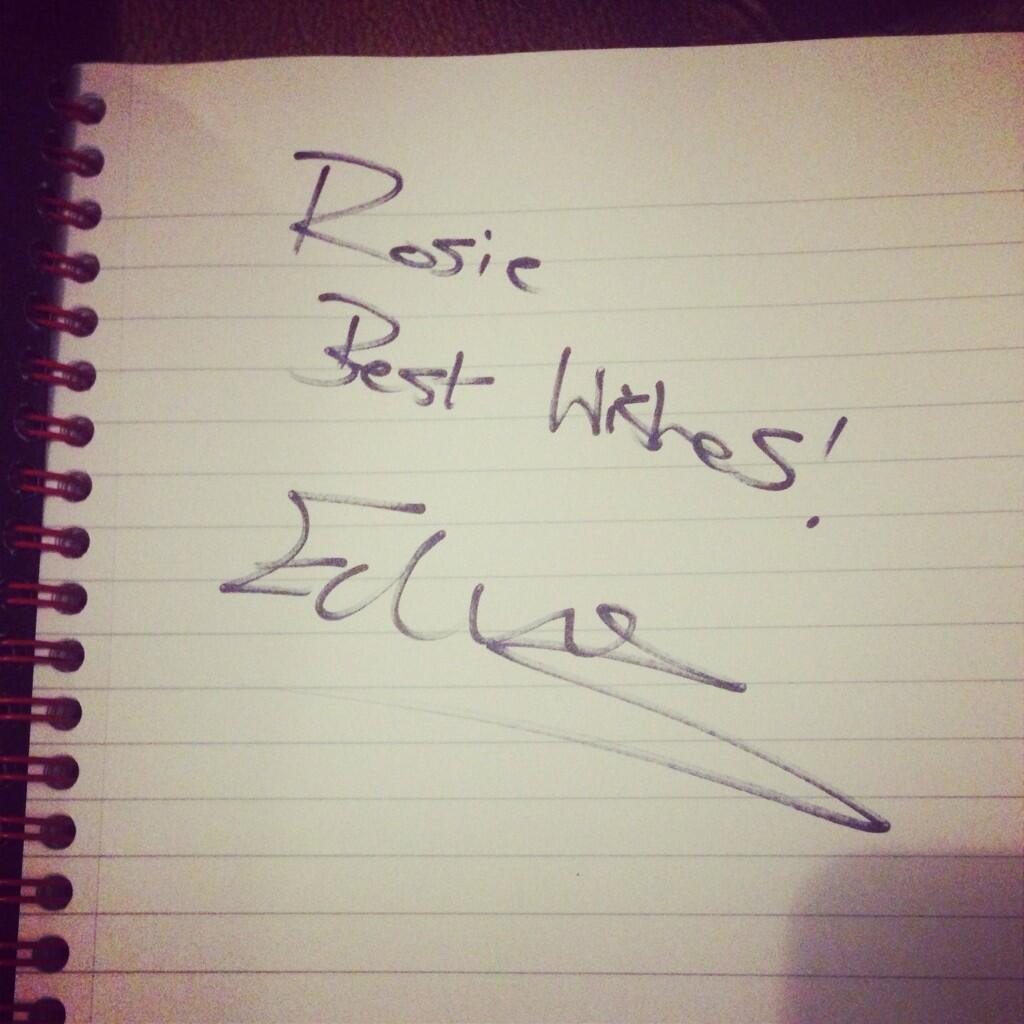 Rosie
Best Wishes!